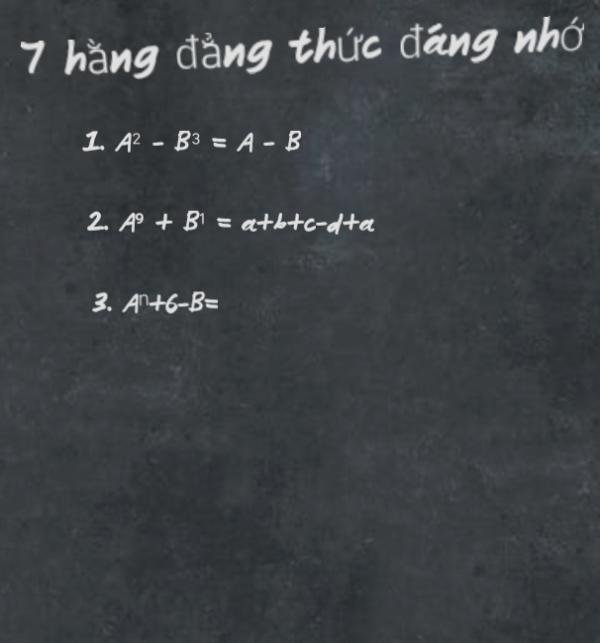 7 hằng đẳng thức đáng nhớ
1. A² - B³ = A - B
2. A⁹ + B¹ = a+b+c-d+a
3. Aⁿ+6-B=